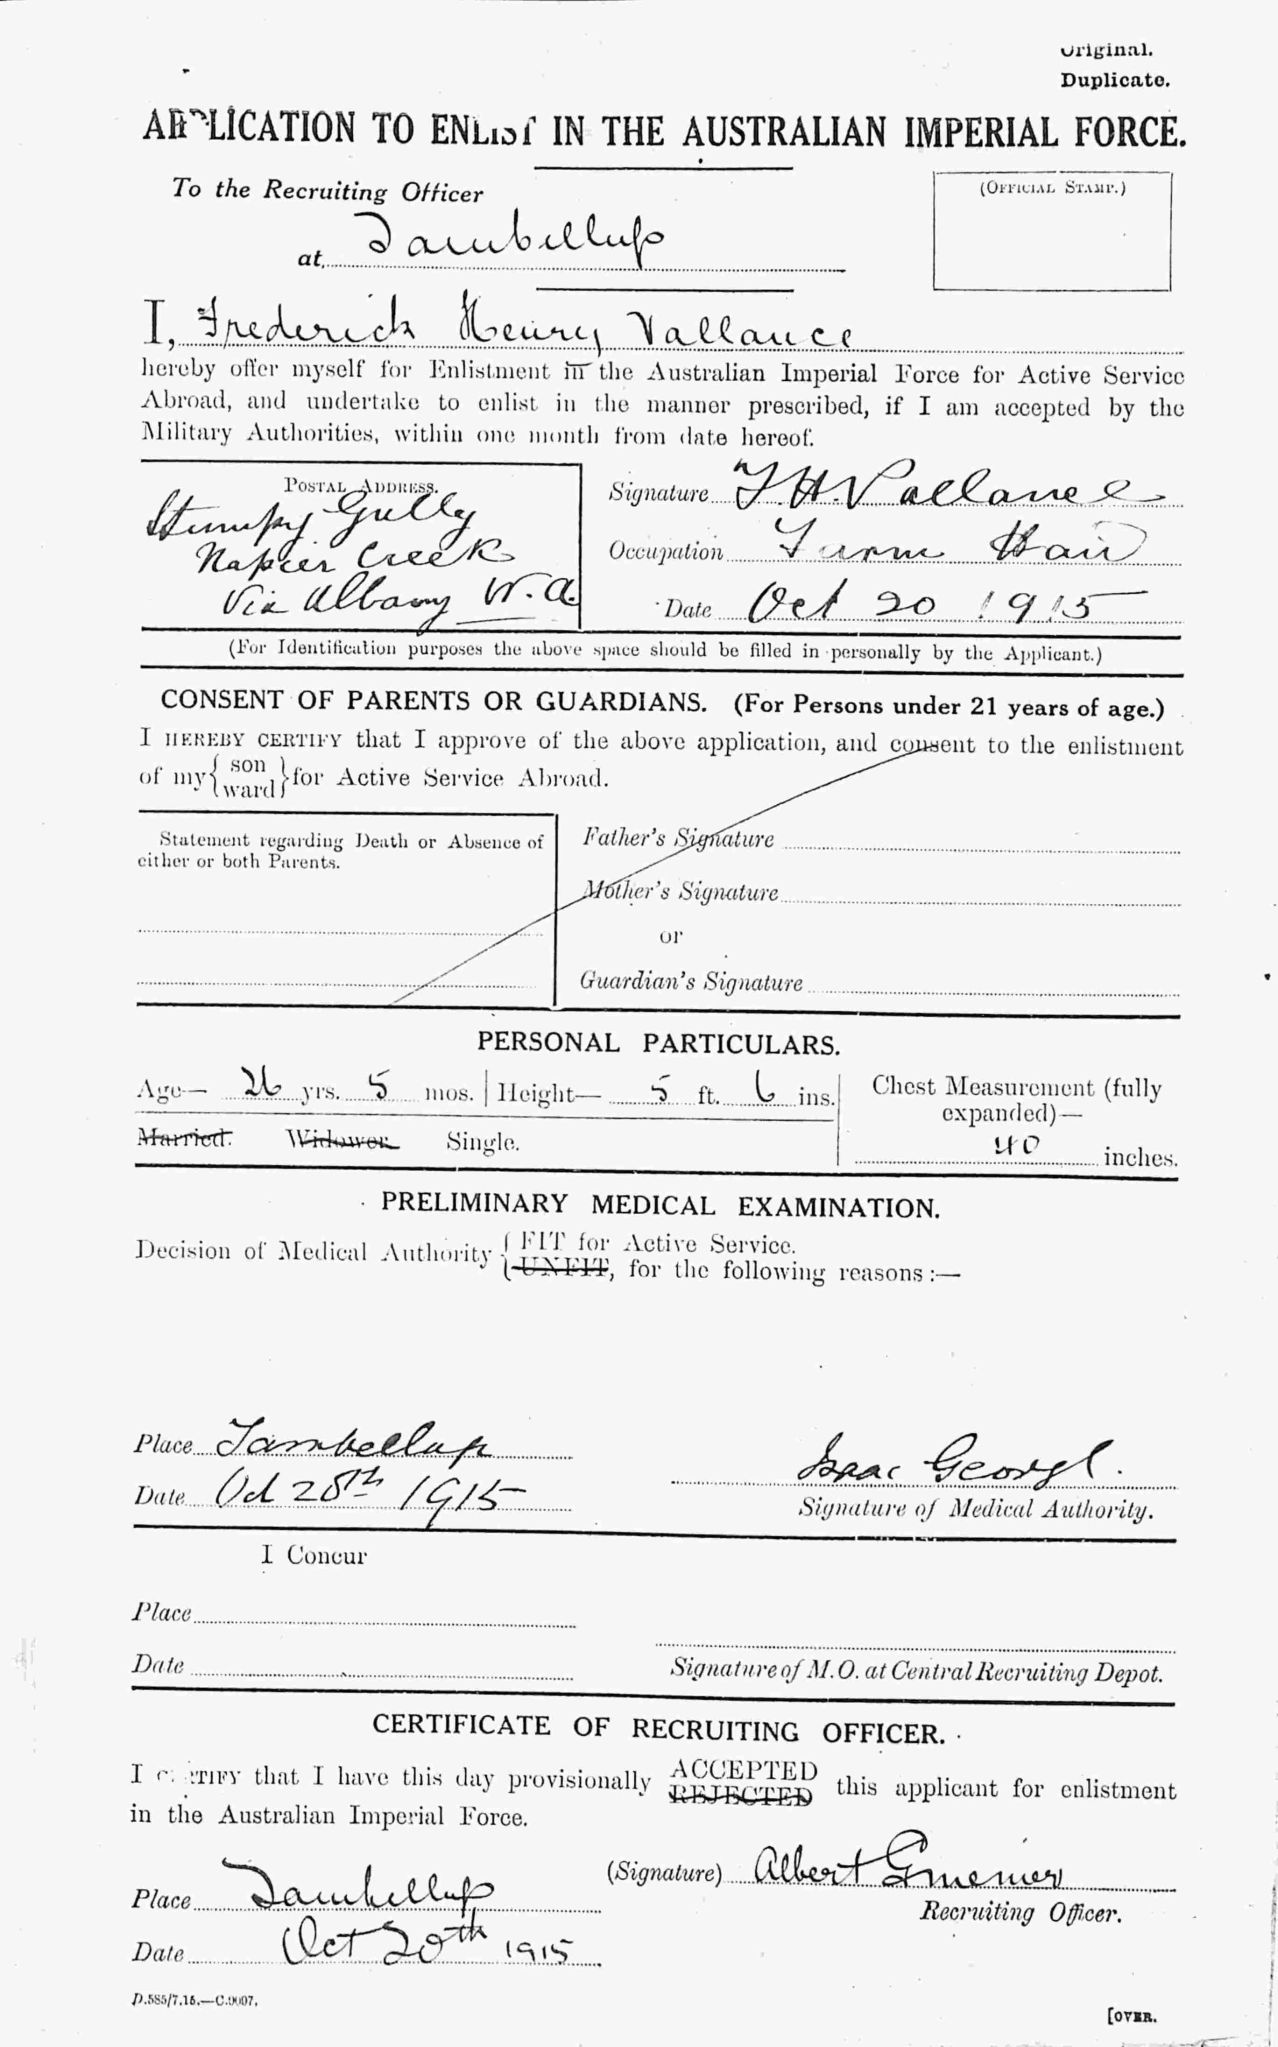 Original.
Duplicate.
APPLICATION TO ENLIST IN THE AUSTRALIAN IMPERIAL FORCE.
To the Recruiting Officer
(Official Stamp.)
at Tambellup
I, Frederick Henry Vallance
hereby offer myself for Enlistment in the Australian Imperial Force for Active Service
Abroad, and undertake to enlist in the manner prescribed, if I am accepted by the
Military Authorities, within one month from date hereof.
Postal Address.
Stumpy Gully
Napier Creek
Via Albany W.A.
Signature F.H.Vallance
Occupation Farm Han
Date Oct 20 1915
(For Identification purposes the above space should be filled in personally by the Applicant.)
CONSENT OF PARENTS OR GUARDIANS. (For Persons under 21 years of age.)
I HEREBY CERTIFY that I approve of the above application, and consent to the enlistment
of my { son ward } for Active Service Abroad.
Statement regarding Death or Absence of
either or both Parents.
Father's Signature
Mother's Signature
or
Guardian's Signature
PERSONAL PARTICULARS.
Age— 26 yrs. 5 mos. Height— 5 ft. 6 ins.
Chest Measurement (fully
expanded)—
40 inches.
Married. Widower. Single.
PRELIMINARY MEDICAL EXAMINATION.
Decision of Medical Authority { FIT for Active Service.
UNFIT, for the following reasons :—
Place Tambellup
Date Oct 20th 1915
Isaac George.
Signature of Medical Authority.
I Concur
Place
Date
Signature of M.O. at Central Recruiting Depot.
CERTIFICATE OF RECRUITING OFFICER.
I CERTIFY that I have this day provisionally ACCEPTED REJECTED this applicant for enlistment
in the Australian Imperial Force.
(Signature) Albert
Recruiting Officer.
Place Tambellup
Date Oct 20th 1915
D.585/7.15.—C.9007.
[OVER.